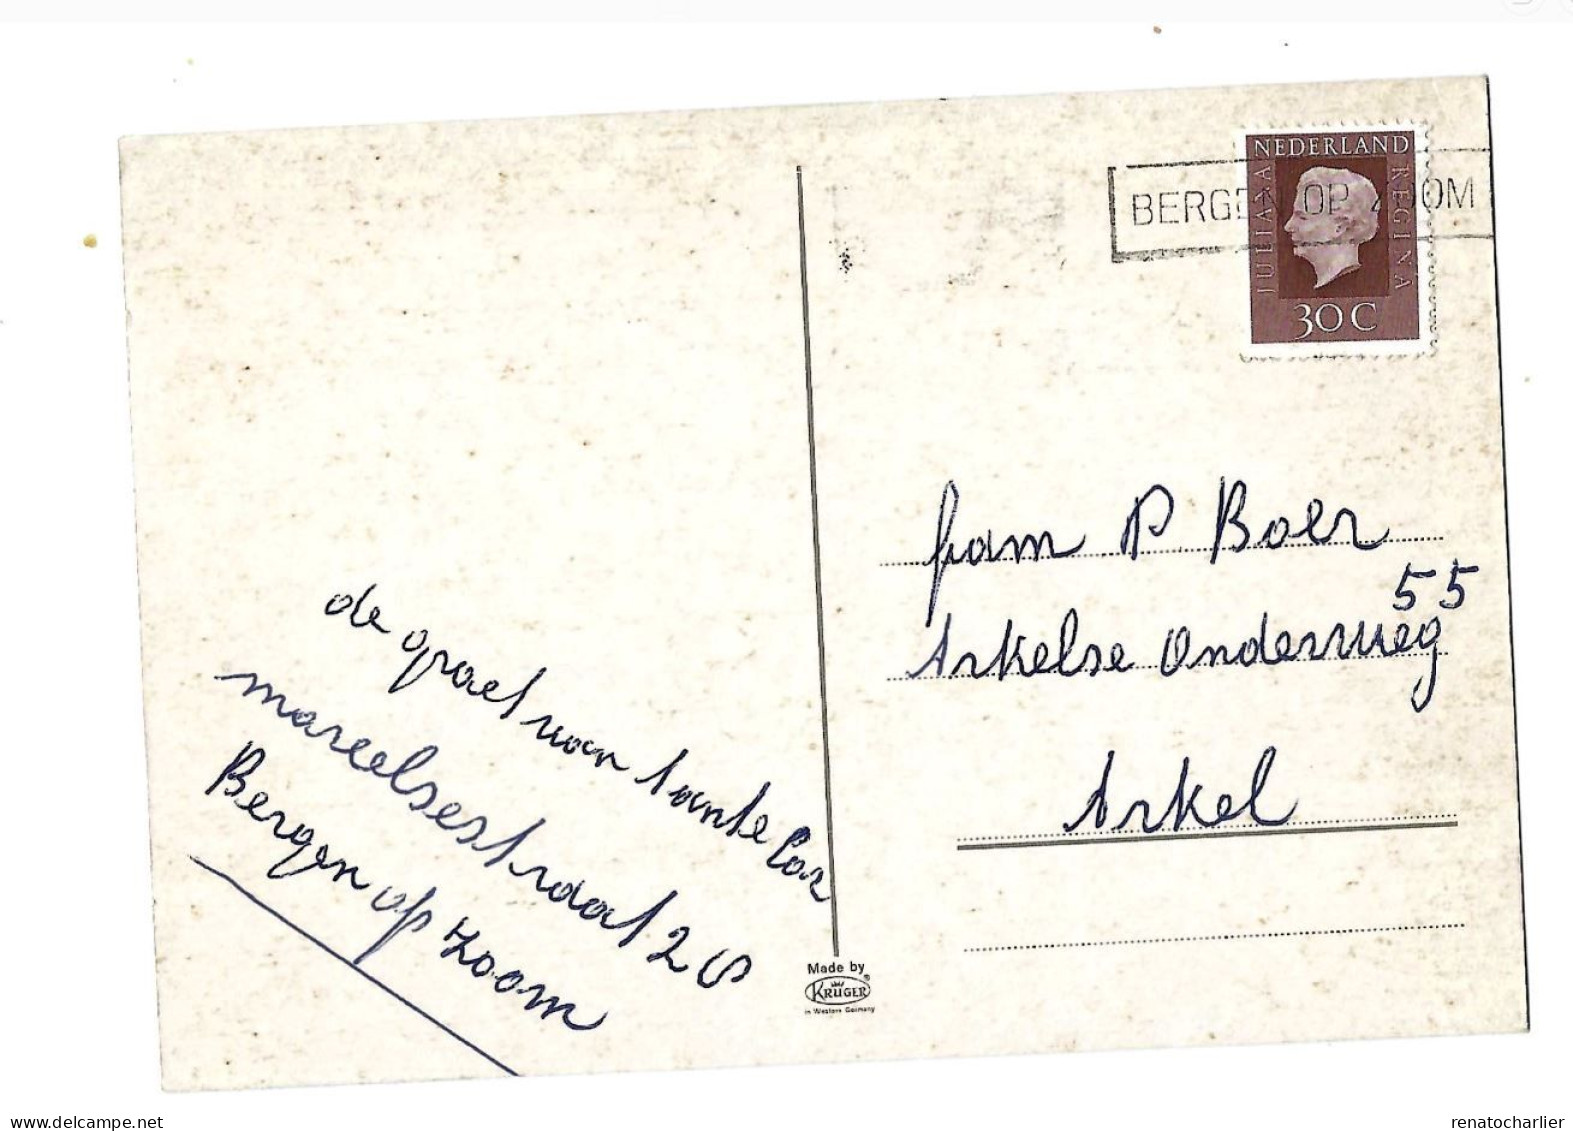 NEDERLAND
JULIANA
REGINA
30 C
BERGEN OP ZOOM
fam P Boer
55
Arkelse Onderweg
Arkel
de groet van tante Cor
marcelsestraat 26
Bergen op Zoom
Made by
KRÜGER®
in Western Germany
www.delcampe.net
renatocharlier